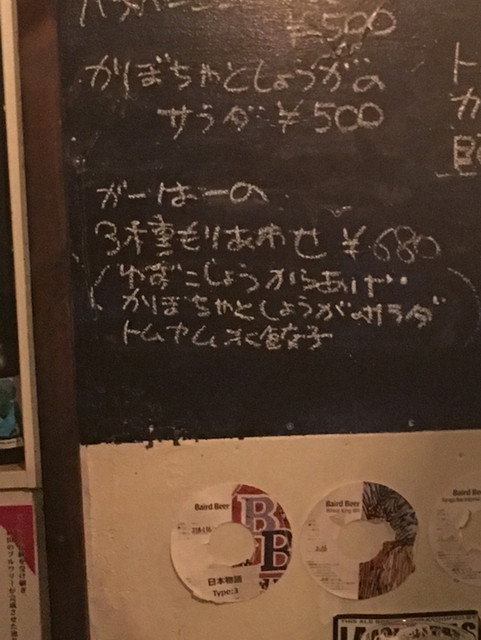 ¥500
かぼちゃとしょうがの
サラダ ¥500
がーはーの
3種もりあわせ ¥680
ゆずこしょうからあげ
かぼちゃとしょうがのサラダ
トムヤム水餃子
ト
カ
Baird Beer
日本物語
Type:3
Baird Beer
Baird Beer